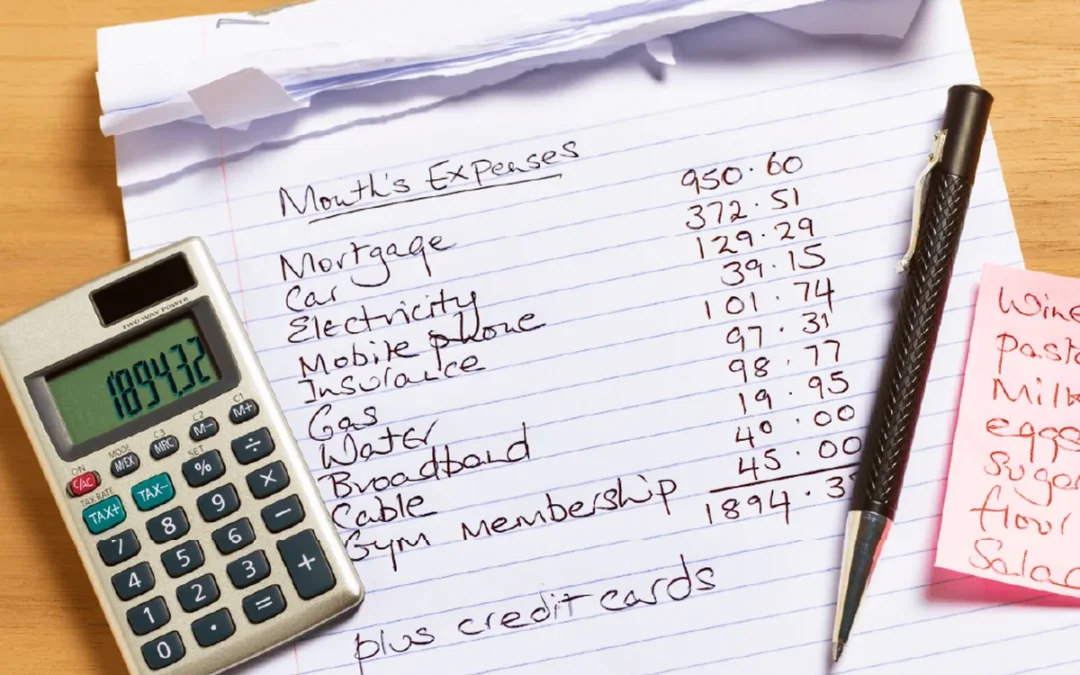 Month's Expenses
Mortgage 950.60
Car 372.51
Electricity 129.29
Mobile phone 39.15
Insurance 101.74
Gas 97.31
Water 98.77
Broadband 19.95
Cable 40.00
Gym Membership 45.00
1894.3
plus credit cards
TWO WAY POWER
1894.32
ON MODE C3 C2 C1
C/AC M/EX MRC M- M+
TAX RATE SET
TAX+ TAX- % ÷
7 8 9 ×
4 5 6 −
1 2 3 +
0 . =
Wine
pasta
Milk
eggs
Sugar
flour
Salad